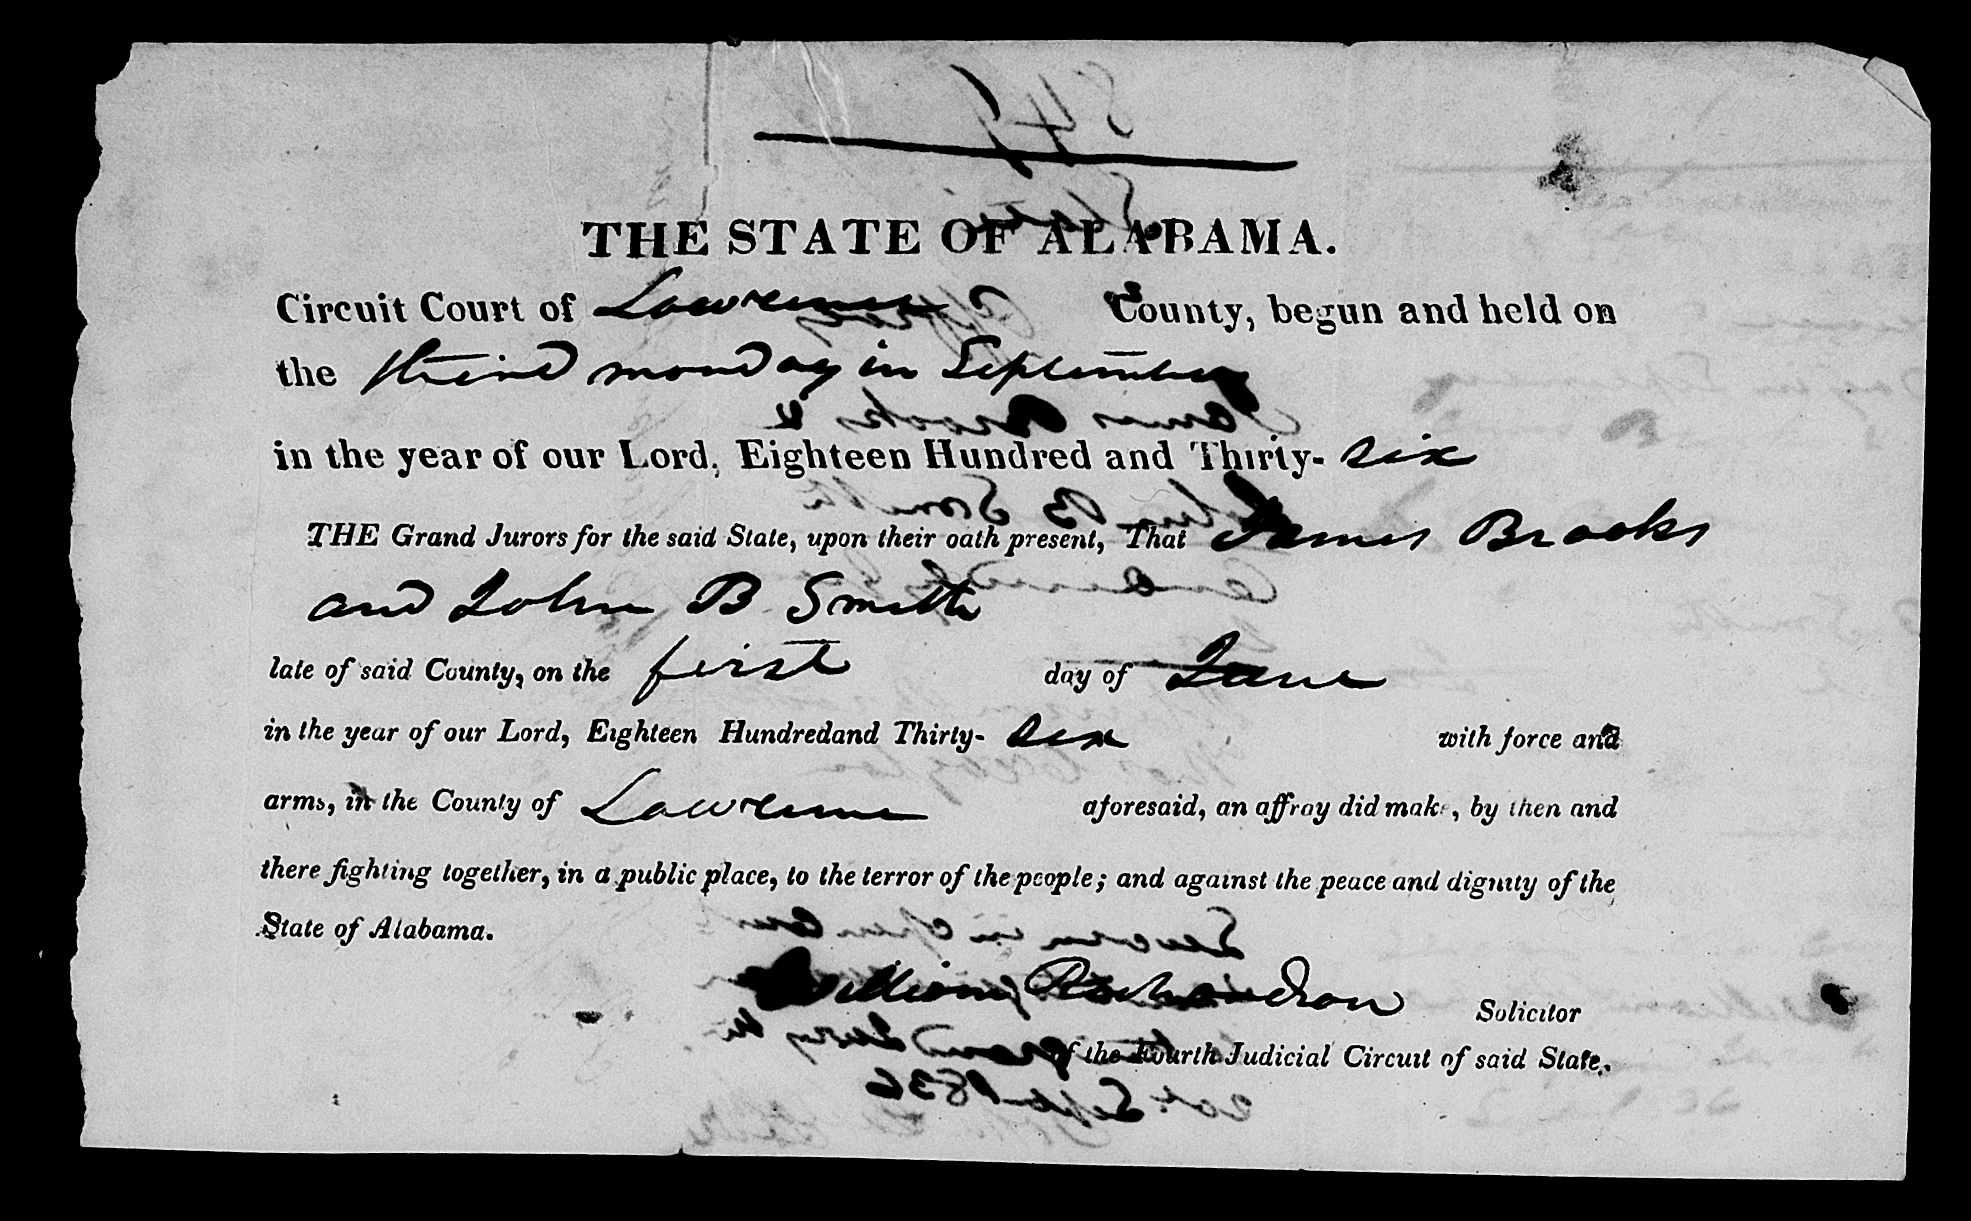 THE STATE OF ALABAMA.
Circuit Court of Lawrence County, begun and held on
the third monday in September
in the year of our Lord, Eighteen Hundred and Thirty- six
THE Grand Jurors for the said State, upon their oath present, That James Brooks
and John B Smith
late of said County, on the first day of June
in the year of our Lord, Eighteen Hundredand Thirty- six with force and
arms, in the County of Lawrence aforesaid, an affray did make, by then and
there fighting together, in a public place, to the terror of the people; and against the peace and dignity of the
State of Alabama.
William Richardson Solicitor
of the Fourth Judicial Circuit of said State.